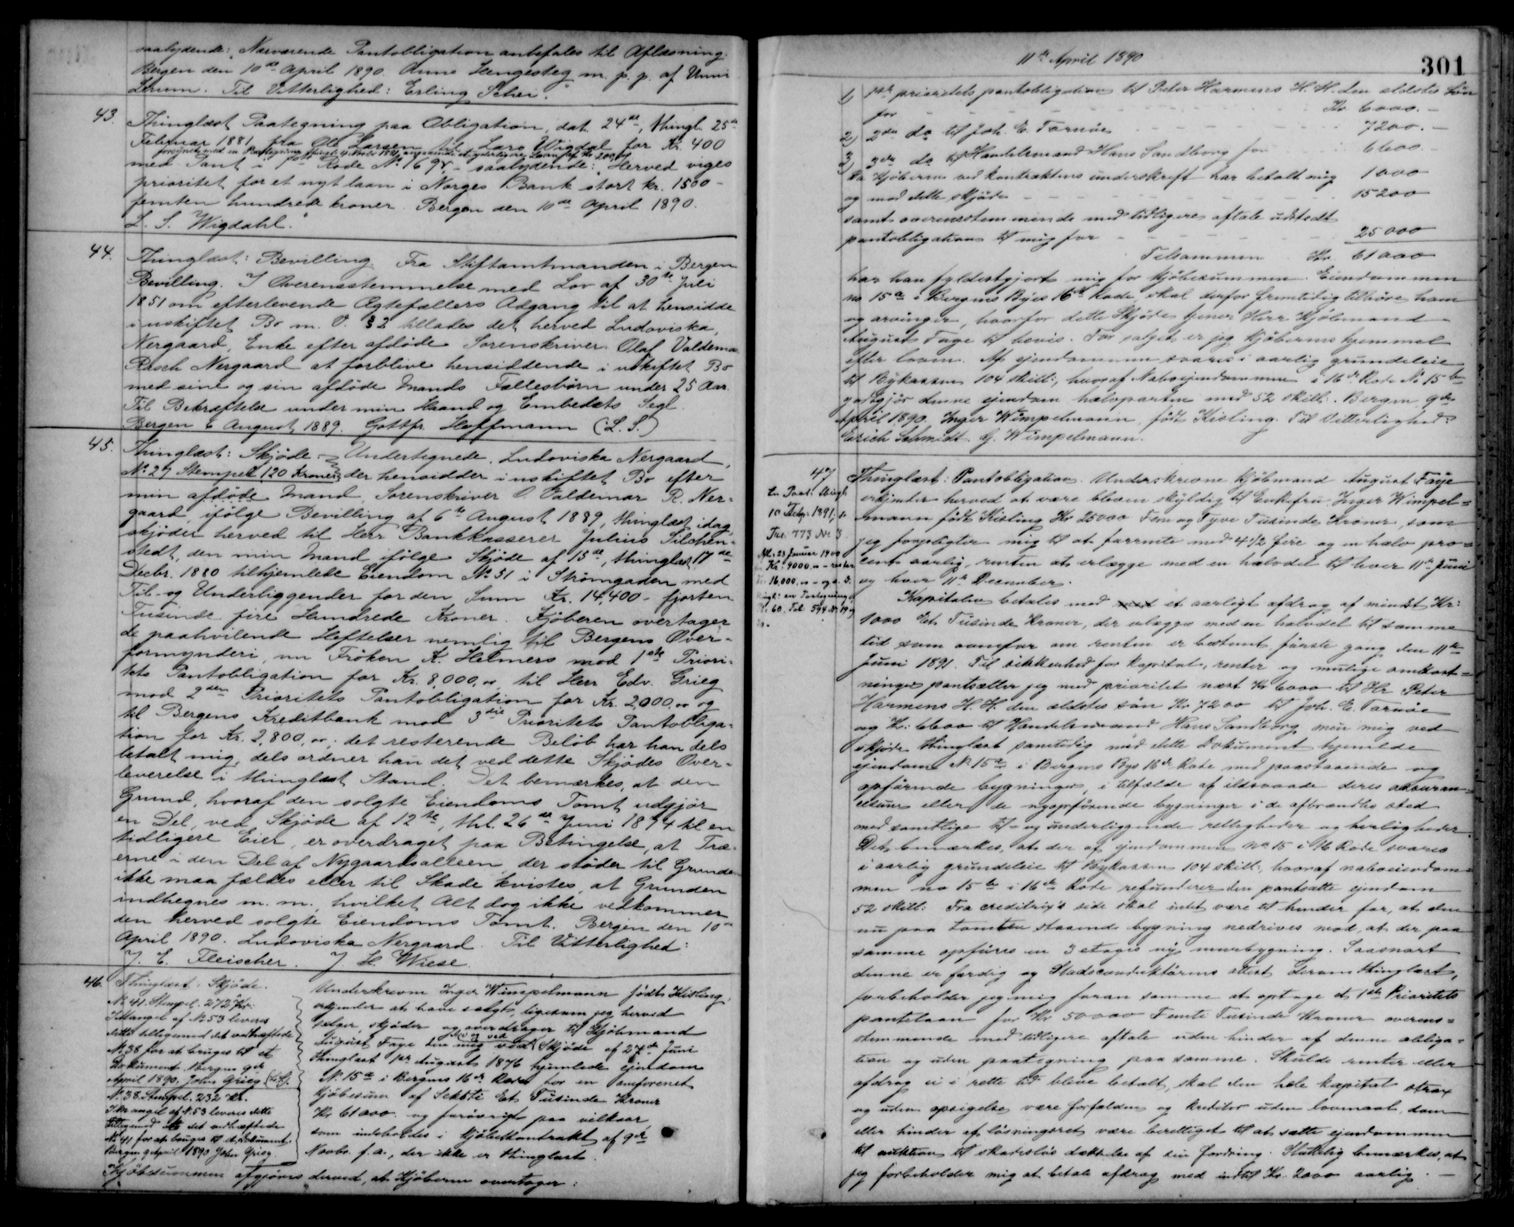 saalydende: Nærværende Pantobligation anbefales til Aflæsning.
Bergen den 10de April 1890. Anna Hengesteg m. p. p. af Unni
Lerum. Til Vitterlighed: Erling Schei."
43. Thinglæst Paategning paa Obligation, dat. 24de, thingl. 25de
Februar 1881 fra Ole Larsen til Lars Wigdal for Kr. 400
med Pant i 1ste Rode No 169, – saalydende: "Herved viges
prioritet for et nyt laan i Norges Bank stort kr. 1500 –
femten hundrede kroner. Bergen den 10de April 1890.
L. S. Wigdahl."
44. Thinglæst: Bevilling. Fra Stiftamtmanden i Bergen
Bevilling. I Overensstemmelse med Lov af 30te Juli
1851 om efterlevende Ægtefællers Adgang til at hensidde
i uskiftet Bo m. V. § 2 tillades det herved Ludoviska
Nergaard, Enke efter afdøde Sorenskriver Olaf Valdemar
Rosch Nergaard at forblive hensiddende i uskiftet Bo
med sine og sin afdøde Mands Fællesbørn under 25 Aar.
Til Bekræftelse under min Haand og Embedets Segl.
Bergen 6 August 1889. Gottfr. Hoffmann (L. S.)
45. Thinglæst: Skjøde. Undertegnede, Ludoviska Nergaard,
No 27 Stempel 120 Kroner der hensidder i uskiftet Bo efter
min afdøde Mand, Sorenskriver O. Valdemar R. Ner-
gaard, ifølge Bevilling af 6te August 1889, thinglæst idag,
skjøder herved til Herr Bankkasserer Julius Tilchen-
stedt, den min Mand ifølge Skjøde af 15de, thinglæst 17de
Decbr. 1880 tilhjemlede Eiendom No 31 i Strømgaden med
Til- og Underliggender for den Sum Kr. 14,400 – fjorten
Tusinde fire Hundrede Kroner. Kjøberen overtager
de paahvilende Heftelser nemlig til Bergens Over-
formynderi, nu Frøken K. Helmers mod 1ste Priori-
tets Pantobligation for Kr. 8,000,00 til Herr Edv. Grieg
mod 2den Prioritets Pantobligation for Kr. 2,000,00 og
til Bergens Kreditbank mod 3die Prioritets Pantobliga-
tion for Kr. 2,800,00; det resterende Beløb har han dels
betalt mig, dels ordner han det ved dette Skjødes Over-
leverelse i thinglæst Stand. Det bemærkes, at den
Grund, hvoraf den solgte Eiendoms Tomt udgjør
en Del, ved Skjøde af 12te, thl. 26de Juni 1874 til en
tidligere Eier, er overdraget paa Betingelse, at Træ-
erne i den Del af Nygaardsalleen, der støder til Grunden
ikke maa fældes eller til Skade kvistes, at Grunden
indhegnes m. m., hvilket Alt dog ikke vedkommer
den herved solgte Eiendoms Tomt. Bergen den 10de
April 1890. Ludoviska Nergaard. Til Vitterlighed:
J. E. Fleischer. J. H. Wiese.
46. Thinglæst: Skjøde.
No 41. Stempel. 272 Kr.
I Mangel af No 53 leveres
dette tilligemed det vedhæftede
No 38 for at bruges til et
Dokument. Bergen 9de
April 1890. John Grieg
No 38. Stempel. 232 Kr.
I Mangel af No 53 leveres dette
tilligemed det vedhæftede
No 41 for at bruges til et Dokument.
Bergen 9 April 1890 John Grieg
Underskrevne Inger Wimpelmann født Kisling,
erkjender at have solgt, ligesom jeg herved
sælger, skjøder og overdrager til Kjøbmand
August Faye den mig ved Skjøde af 27de Juni
thinglæst 1ste August 1876 hjemlede ejendom
No 15 i Bergens 16de Rode for en omforenet
kjøbesum af Seksti Et Tusinde Kroner
Kr. 61000 og forøvrigt paa vilkaar
som indeholdes i kjøbekontrakt af 9de
Novbr. f. a., der ikke er thinglæst.
Kjøbesummen afgjøres derved, at Kjøberen overtager:
11te April 1890
301
1) 1ste prioritets pantobligation til Peter Harmens H. H. den ældstes søn
for Kr. 6000. –
2) 2den do til Joh. E. Tornøe 7200. –
3) 3die do til Handelsmand Hans Sandborg for 6600. –
da kjøberen ved kontraktens underskrift har betalt mig 1000
og med dette skjøde 15200
samt overensstemmende med tidligere aftale udstedt
pantobligation til mig for 25000
Tilsammen Kr. 61000
har han fyldestgjort mig for kjøbesummen. Eiendommen
no 15 i Bergens Byes 16de Rode, skal derfor fremtidig tilhøre ham
og arvinger, hvorfor dette Skjøde tjener Herr Kjøbmand
August Faye til bevis. For salget er jeg Kjøberens hjemmel
efter loven. Af ejendommen svares i aarlig grundeleie
til Bykassen 104 skill., hvoraf Naboejendommen i 16de Rode No 15
godtgjør denne ejendom halvparten med 52 skill. Bergen 9de
April 1890. Inger Wimpelmann, født Kisling. Til Vitterlighed:
Erich Schmidt. G. Wimpelmann.
47
10 1891,
Kr. 9000.
16,000.
Thinglæst: Pantobligation. Underskrevne Kjøbmand August Faye
erkjender herved at være bleven skyldig til Enkefru Inger Wimpel-
mann født Kisling Kr 25000 Fem og Tyve Tusinde Kroner, som
jeg forpligter mig til at forrente med 4½ fire og en halv pro-
cent aarlig, renten at erlægge med en halvdel til hver 11te Juni
og hver 11te December.
Kapitalen betales med et aarligt afdrag af mindst Kr:
1000 Et Tusinde Kroner, der erlægges med en halvdel til samme
tid som ovenfor om renten er bestemt første gang den 11te
Juni 1891. Til sikkerhed for kapital, renter og mulige omkost-
ninger pantsætter jeg med prioritet næst Kr 6000 til Hr. Peter
Harmens H. H. den ældstes søn Kr. 7200 til Joh. E. Tornøe
og Kr. 6600 til Handelsmand Hans Sandborg, min mig ved
skjøde thinglæst samtidig med dette Dokument hjemlede
ejendom No 15 i Bergens Bys 16de Rode med paastaaende og
opførende bygninger, i tilfælde af ildsvaade deres assuran-
cesum eller de nyopførende bygninger i de afbrændtes sted
med samtlige til- og underliggende rettigheder og herligheder.
Det bemærkes, at der af ejendommen no 15 i 16 Rode svares
i aarlig grundeleie til Bykassen 104 skill. hvoraf naboeiendom-
men no 15 i 16de Rode refunderer den pantsatte ejendom
52 skill. Fra creditrix's side skal intet være til hinder for, at den
nu paa tomten staaende bygning nedrives mod, at der paa
samme opføres en 3 etages ny murbygning. Saasnart
denne er færdig og Stadsconduktørens attest derom thinglæst,
forbeholder jeg mig foran samme at optage et 1ste Prioritets
pantelaan for Kr 50000 Femti Tusinde Kroner overens-
stemmende med tidligere aftale uden hinder af denne obliga-
tion og uden paategning paa samme. Skulde renter eller
afdrag ei i rette tid blive betalt, skal den hele kapital strax
og uden opsigelse være forfalden og kreditor uden lovmaal, dom
eller hinder af løsningsret være berettiget til at sætte ejendommen
til auktion til skadesløs dækkelse af sin fordring. Sluttelig bemærkes, at
jeg forbeholder mig at betale afdrag med indtil Kr. 2000 aarlig. –